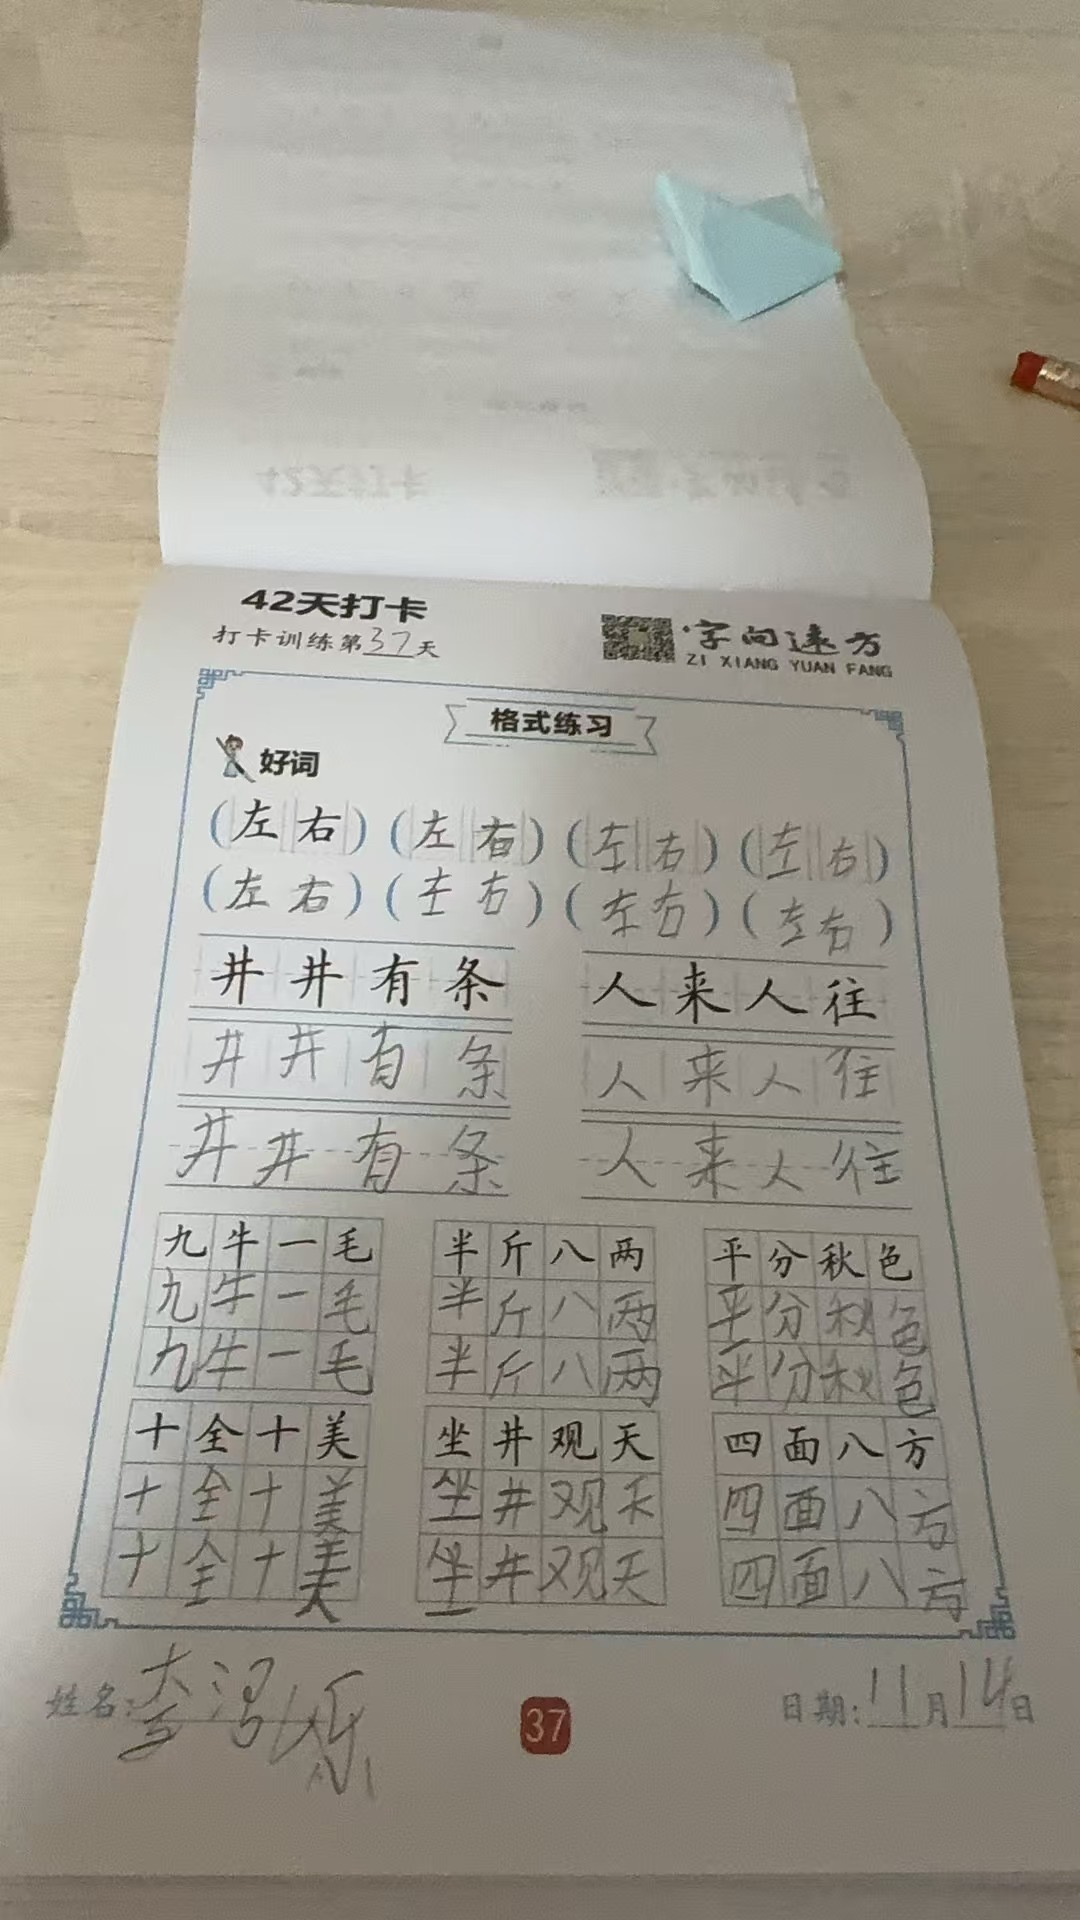 42天打卡
打卡训练第37天
字向远方
ZI XIANG YUAN FANG
格式练习
好词
(左右) (左右) (左右) (左右)
(左右) (左右) (左右) (左右)
井井有条 人来人往
井井有条 人来人往
井井有条 人来人往
九牛一毛 半斤八两 平分秋色
九牛一毛 半斤八两 平分秋色
九牛一毛 半斤八两 平分秋色
十全十美 坐井观天 四面八方
十全十美 坐井观天 四面八方
十全十美 坐井观天 四面八方
姓名: 日期:11月14日
37